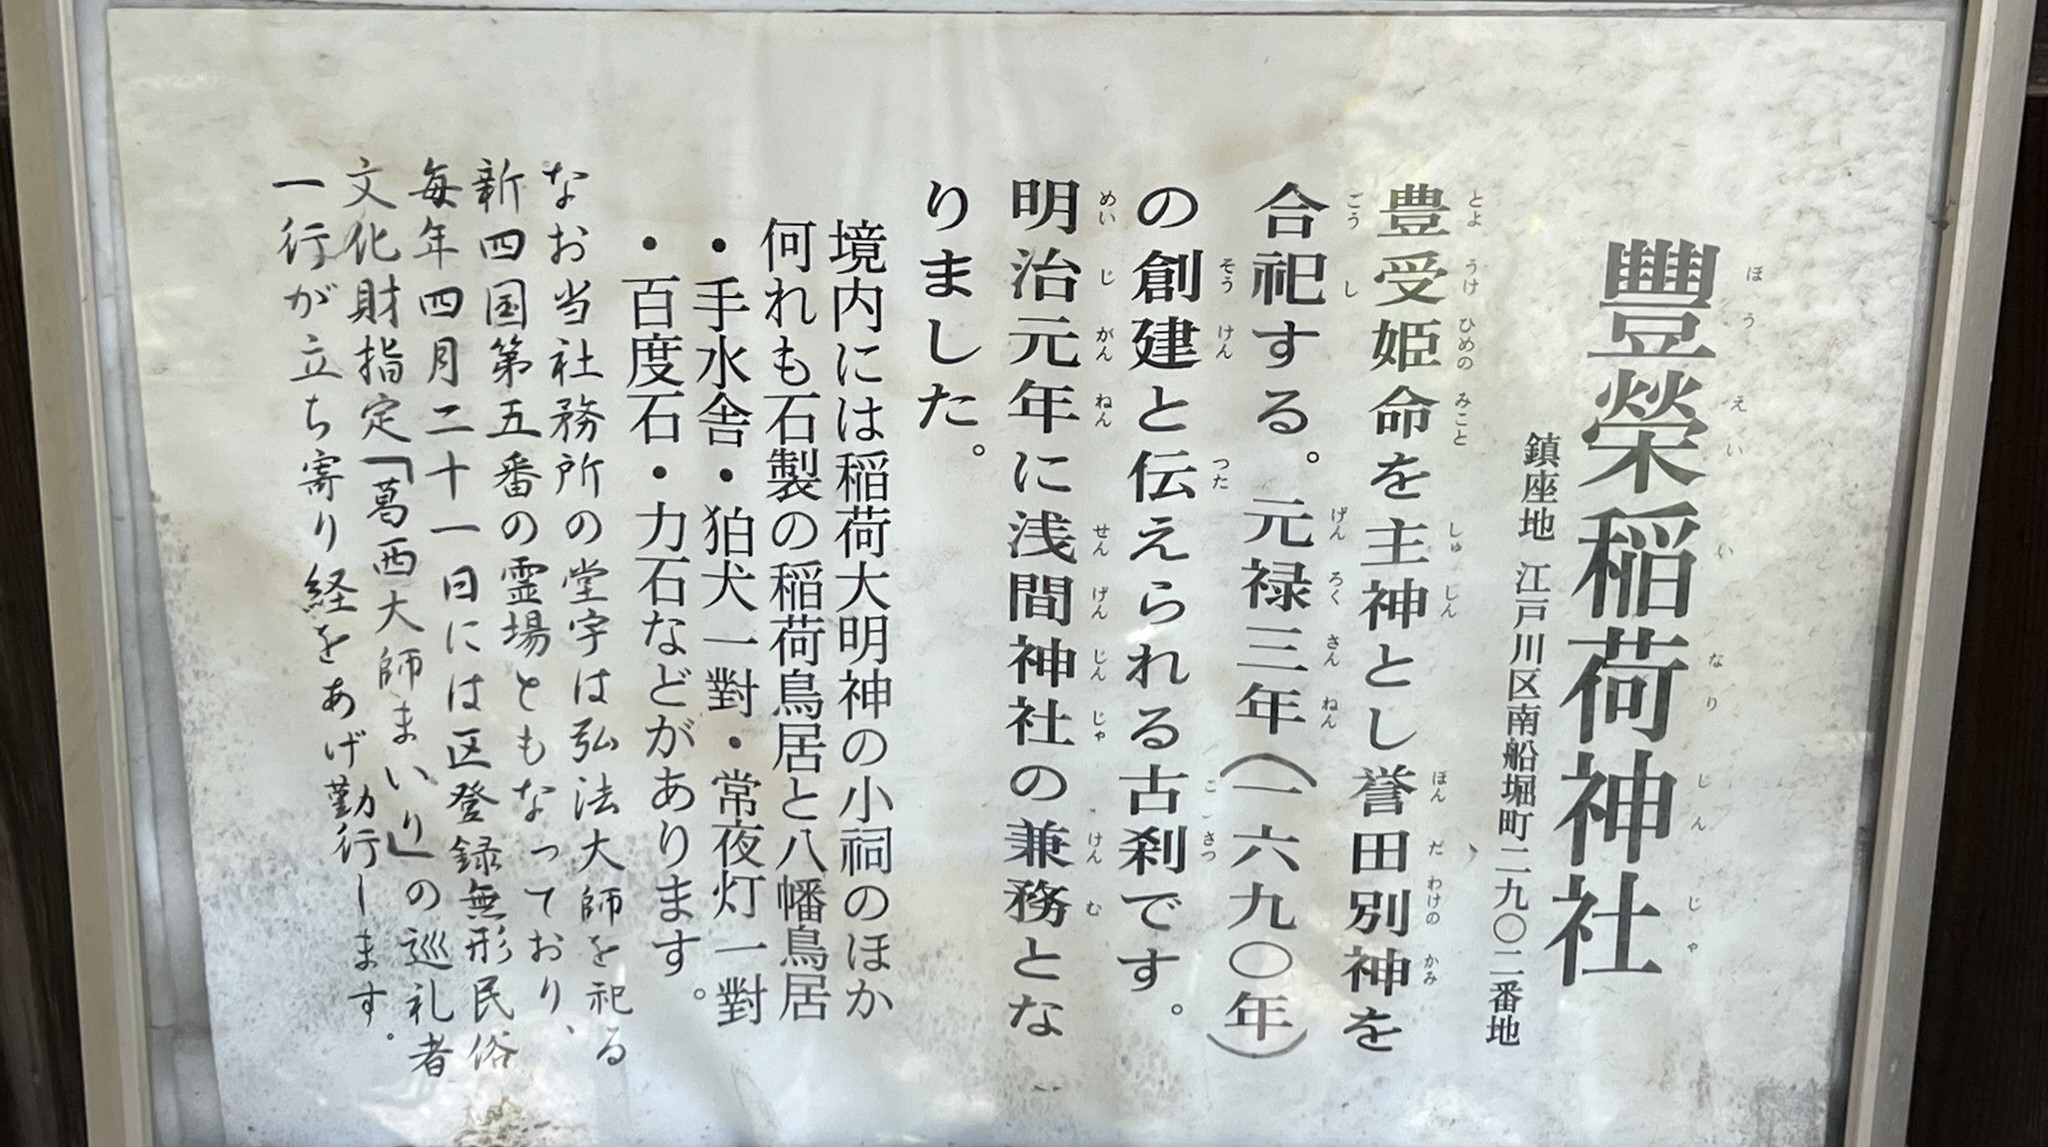 豐榮稲荷神社
鎮座地 江戸川区南船堀町二九〇二番地
豊受姫命を主神とし誉田別神を
合祀する。元禄三年(一六九〇年)
の創建と伝えられる古刹です。
明治元年に浅間神社の兼務とな
りました。
境内には稲荷大明神の小祠のほか
何れも石製の稲荷鳥居と八幡鳥居
・手水舎・狛犬一對・常夜灯一對
・百度石・力石などがあります。
なお当社務所の堂宇は弘法大師を祀る
新四国第五番の霊場ともなっており、
毎年四月二十一日には区登録無形民俗
文化財指定「葛西大師まいり」の巡礼者
一行が立ち寄り経をあげ勤行します。